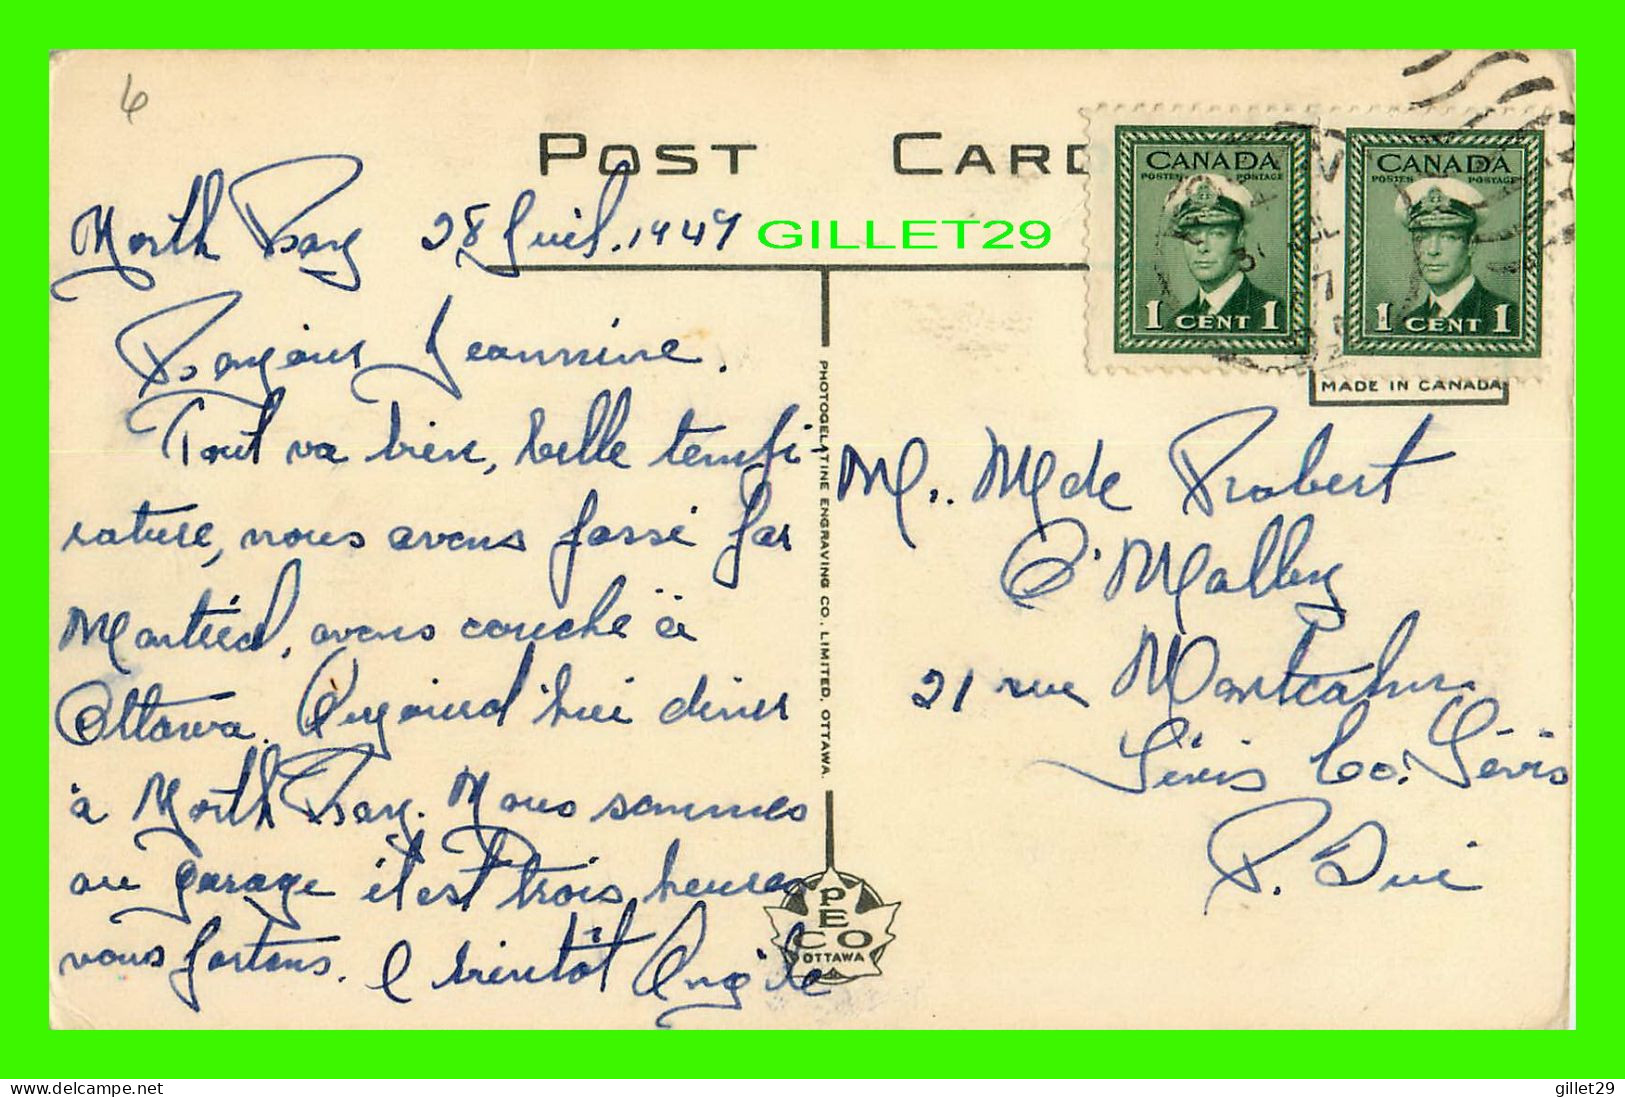 6
POST CARD
North Bay 28 Juil. 1947
GILLET29
Bonjour Jeannine.
Tout va bien, belle tempé-
rature, nous avons passé par
Montréal, avons couché à
Ottawa. Aujourd'hui diner
à North Bay. Nous sommes
au garage il est trois heures
nous partons. A bientôt Angèle
CANADA
POSTES POSTAGE
1 CENT 1
CANADA
POSTES POSTAGE
1 CENT 1
MADE IN CANADA
M.. Mde Robert
O'Malley
21 rue Montcalm
Lévis Co. Lévis
P. Qué
PHOTOGELATINE ENGRAVING CO., LIMITED, OTTAWA.
PECO
OTTAWA
delcampe.net
gillet29